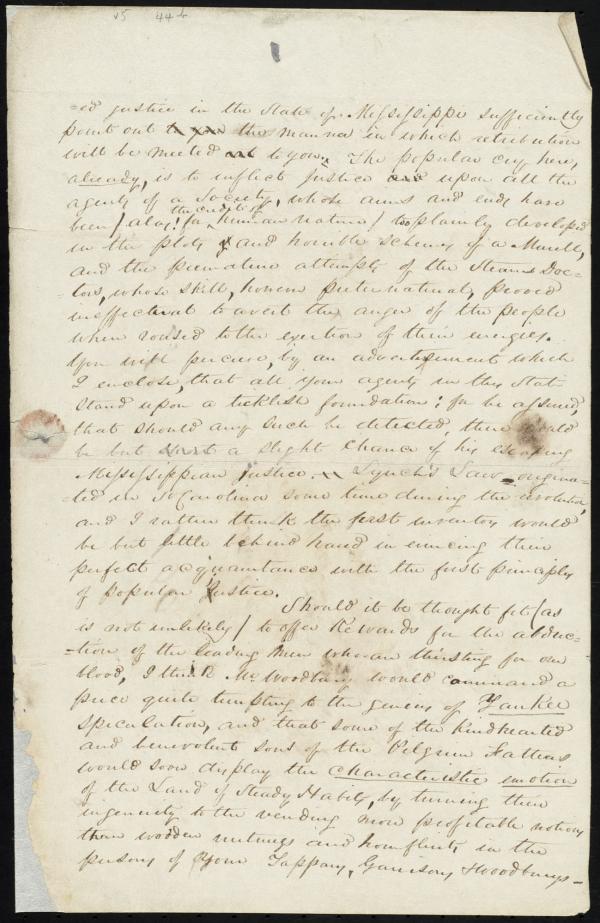 v5 44b
-ed justice in the State of Mississippi sufficiently
point out to you the manner in which retribution
will be meeted out to you. The popular cry here,
already, is to inflict Justice upon all the
agents of a Society, whose aims and ends have
been (alas! for the credit of human nature) too plainly developed
in the plots and horrible schemes of a Murell,
and the premature attempts of the Steam Doc-
-tors, whose skill, however preternatural, proved
ineffectual to avert the anger of the people
when roused to the exertion of their energies.
You will perceive, by an advertisement which
I enclose, that all your agents in this State
stand upon a ticklish foundation; for be assured,
that should any such be detected, there would
be but a slight chance of his escaping
Mississippian Justice. Lynch's Law origina-
-ted in So Carolina some time during the revolution,
and I rather think the first inventors would
be but little behind hand in evincing their
perfect acquaintance with the first principles
of popular Justice.
Should it be thought fit (as
is not unlikely) to offer Rewards for the abduc-
-tion of the leading Men who are thirsting for our
blood, I think Mr Woodbury would command a
price quite tempting to the genius of Yankee
speculation, and that some of the kindhearted
and benevolent sons of the Pilgrim Fathers
would soon display the characteristic emotion
of the Land of Steady Habits, by turning their
ingenuity to the vending more profitable notions
than wooden nutmegs and hornflints, in the
persons of Your Tappans, Garrisons & Woodburys-